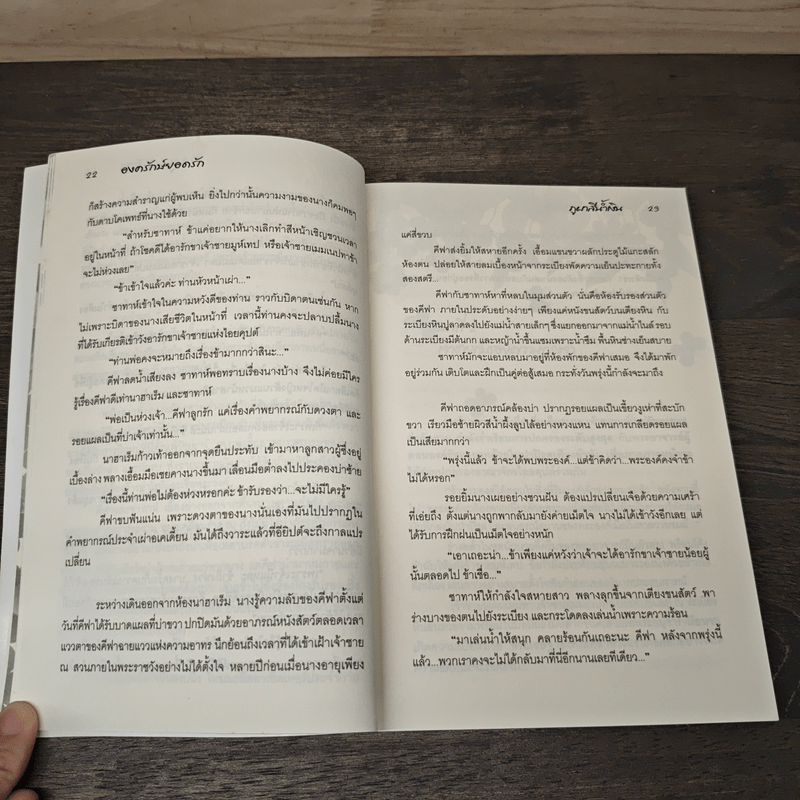 22 องครักษ์ยอดรัก
ก็สร้างความสำราญแก่ผู้พบเห็น ยิ่งไปกว่านั้นความงามของนางก็คมพอๆ
กับดาบโคเพทธ์ที่นางใช้ด้วย
“สำหรับซาทาห์ ข้าแค่อยากให้นางเลิกทำสีหน้าเชิญชวนเวลา
อยู่ในหน้าที่ ถ้าโชคดีได้อารักขาเจ้าชายมูห์เทป หรือเจ้าชายเมมเนปทาข้า
จะไม่ห่วงเลย”
“ข้าเข้าใจแล้วค่ะ ท่านหัวหน้าเผ่า...”
ซาทาห์เข้าใจในความหวังดีของท่าน ราวกับบิดาตนเช่นกัน หาก
ไม่เพราะบิดาของนางเสียชีวิตในหน้าที่ เวลานี้ท่านคงจะปลาบปลื้มนาง
ที่ได้รับเกียรติเข้าวังอารักขาเจ้าชายแห่งไอยคุปต์
“ท่านพ่อคงจะหมายถึงเรื่องข้ามากกว่าสินะ...”
คีฟาลดน้ำเสียงลง ซาทาห์พอทราบเรื่องนางบ้าง จึงไม่ค่อยมีใคร
รู้เรื่องคีฟาดีเท่านาฮาเร็ม และซาทาห์
“พ่อเป็นห่วงเจ้า...คีฟาลูกรัก แค่เรื่องคำพยากรณ์กับดวงตา และ
รอยแผลเป็นที่บ่าเจ้าเท่านั้น...”
นาฮาเร็มก้าวเท้าออกจากจุดยืนประทับ เข้ามาหาลูกสาวผู้ซึ่งอยู่
เบื้องล่าง พลางเอื้อมมือเชยคางนางขึ้นมา เลื่อนมือต่ำลงไปประคองบ่าซ้าย
“เรื่องนี้ท่านพ่อไม่ต้องห่วงหรอกค่ะ ข้ารับรองว่า...จะไม่มีใครรู้”
คีฟาขบฟันแน่น เพราะดวงตาของนางนั่นเองที่มันไปปรากฏใน
คำพยากรณ์ประจำเผ่าอเคเดี้ยน มันได้ถึงวาระแล้วที่อียิปต์จะถึงกาลแปร
เปลี่ยน
ระหว่างเดินออกจากห้องนาฮาเร็ม นางรู้ความลับของคีฟาตั้งแต่
วันที่คีฟาได้รับบาดแผลที่บ่าขวา ปกปิดมันด้วยอาภรณ์หนังสัตว์ตลอดเวลา
แววตาของคีฟาฉายแววแห่งความอาทร นึกย้อนถึงเวลาที่ได้เข้าเฝ้าเจ้าชาย
ณ สวนภายในพระราชวังอย่างไม่ได้ตั้งใจ หลายปีก่อนเมื่อนางอายุเพียง
ภูผาสีน้ำเงิน 23
แค่สี่ขวบ
คีฟาส่งยิ้มให้สหายอีกครั้ง เอื้อมแขนขวาผลักประตูไม้แกะสลัก
ห้องตน ปล่อยให้สายลมเบื้องหน้าจากระเบียงพัดความเย็นปะทะกายทั้ง
สองสตรี...
คีฟากับซาทาห์หาที่หลบในมุมส่วนตัว นั่นคือห้องรับรองส่วนตัว
ของคีฟา ภายในประดับอย่างง่ายๆ เพียงแค่หนังขนสัตว์บนเตียงหิน กับ
ระเบียงหินปูลาดลงไปยังแม่น้ำสายเล็กๆ ซึ่งแยกออกมาจากแม่น้ำไนล์ รอบ
ด้านระเบียงมีต้นกก และหญ้าน้ำขึ้นแซมเพราะน้ำซึม พื้นหินช่างเย็นสบาย
ซาทาห์มักจะแอบหลบมาอยู่ที่ห้องพักของคีฟาเสมอ จึงได้มาพัก
อยู่ร่วมกัน เติบโตและฝึกเป็นคู่ต่อสู้เสมอ กระทั่งวันพรุ่งนี้กำลังจะมาถึง
คีฟาถอดอาภรณ์คล้องบ่า ปรากฏรอยแผลเป็นเขี้ยวงูเห่าที่สะบัก
ขวา เรียวมือซ้ายผิวสีน้ำผึ้งลูบไล้อย่างหวงแหน แทนการเกลียดรอยแผล
เป็นเสียมากกว่า
“พรุ่งนี้แล้ว ข้าจะได้พบพระองค์...แต่ข้าคิดว่า...พระองค์คงจำข้า
ไม่ได้หรอก”
รอยยิ้มนางเผยอย่างชวนฝัน ต้องแปรเปลี่ยนเจือด้วยความเศร้า
ที่เอ่ยถึง ตั้งแต่นางถูกพากลับมายังค่ายเม็ดไจ นางไม่ได้เข้าวังอีกเลย แต่
ได้รับการฝึกฝนเป็นเม็ดไจอย่างหนัก
“เอาเถอะน่า...ข้าเพียงแค่หวังว่าเจ้าจะได้อารักขาเจ้าชายน้อยผู้
นั้นตลอดไป ข้าเชื่อ...”
ซาทาห์ให้กำลังใจสหายสาว พลางลุกขึ้นจากเตียงขนสัตว์ พา
ร่างบางของตนไปยังระเบียง และกระโดดลงเล่นน้ำเพราะความร้อน
“มาเล่นน้ำให้สนุก คลายร้อนกันเถอะนะ คีฟา หลังจากพรุ่งนี้
แล้ว...พวกเราคงจะไม่ได้กลับมาที่นี่อีกนานเลยทีเดียว...”